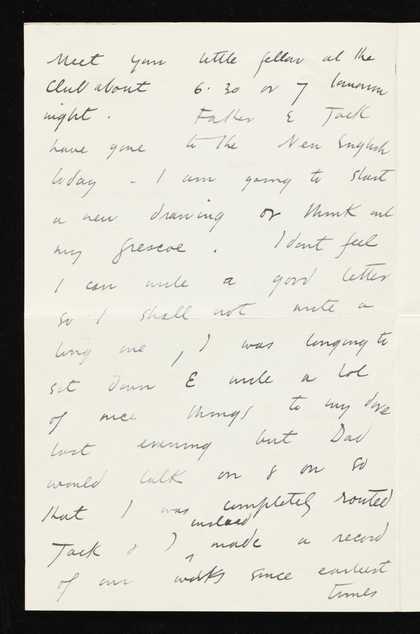 Meet your little fellow at the
Club about 6.30 or 7 tomorrow
night. Father & Jack
have gone to the New English
today - I am going to start
a new drawing or think out
my frescoe. I dont feel
I can write a good letter
so I shall not write a
long one, I was longing to
sit down & write a lot
of nice things to my dove
last evening but Dad
would talk on & on so
that I was completely routed
instead
Jack & I made a record
of our works since earliest
times